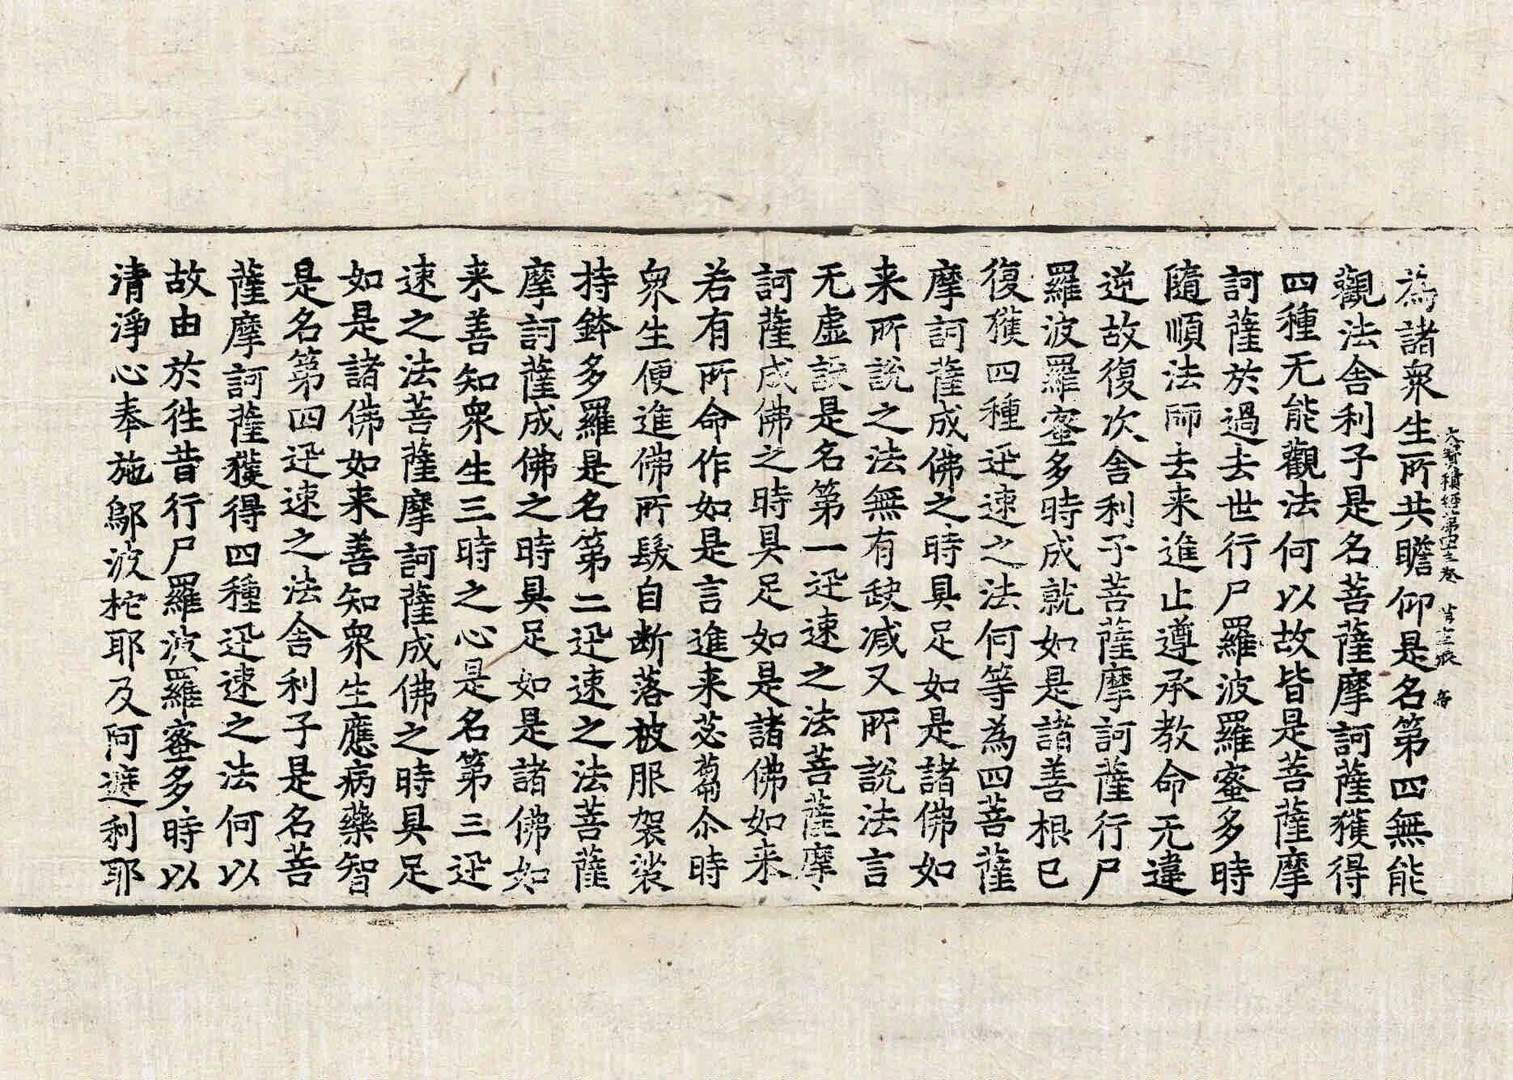 大寶積經第四三卷
為諸衆生所共瞻仰是名第四無能
觀法舍利子是名菩薩摩訶薩獲得
四種无能觀法何以故皆是菩薩摩
訶薩於過去世行尸羅波羅蜜多時
隨順法師去来進止遵承教命无違
逆故復次舍利子菩薩摩訶薩行尸
羅波羅蜜多時成就如是諸善根已
復獲四種迅速之法何等為四菩薩
摩訶薩成佛之時具足如是諸佛如
来所說之法無有缺减又所說法言
无虛設是名第一迅速之法菩薩摩
訶薩成佛之時具足如是諸佛如来
若有所命作如是言進来苾蒭尒時
衆生便進佛所髮自断落被服袈裟
持鉢多羅是名第二迅速之法菩薩
摩訶薩成佛之時具足如是諸佛如
来善知衆生三時之心是名第三迅
速之法菩薩摩訶薩成佛之時具足
如是諸佛如来善知衆生應病藥智
是名第四迅速之法舍利子是名菩
薩摩訶薩獲得四種迅速之法何以
故由於往昔行尸羅波羅蜜多時以
清淨心奉施鄔波柁耶及阿遮利耶